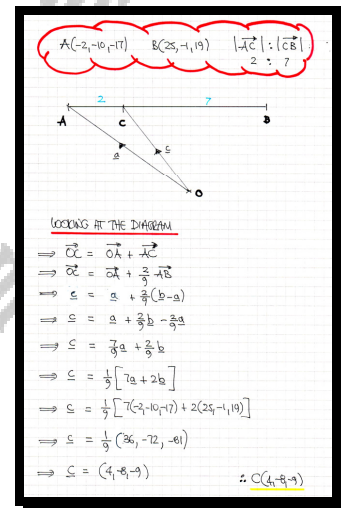 A(-2,-10,-17) B(25,-1,19) |AC→| : |CB→|
2 : 7
2 7
A C B
a c
O
LOOKING AT THE DIAGRAM
⟹ OC→ = OA→ + AC→
⟹ OC→ = OA→ + 2/9 AB→
⟹ c = a + 2/9(b-a)
⟹ c = a + 2/9 b - 2/9 a
⟹ c = 7/9 a + 2/9 b
⟹ c = 1/9 [7a + 2b]
⟹ c = 1/9 [7(-2,-10,-17) + 2(25,-1,19)]
⟹ c = 1/9 (36, -72, -81)
⟹ c = (4,-8,-9) ∴ C(4,-8,-9)